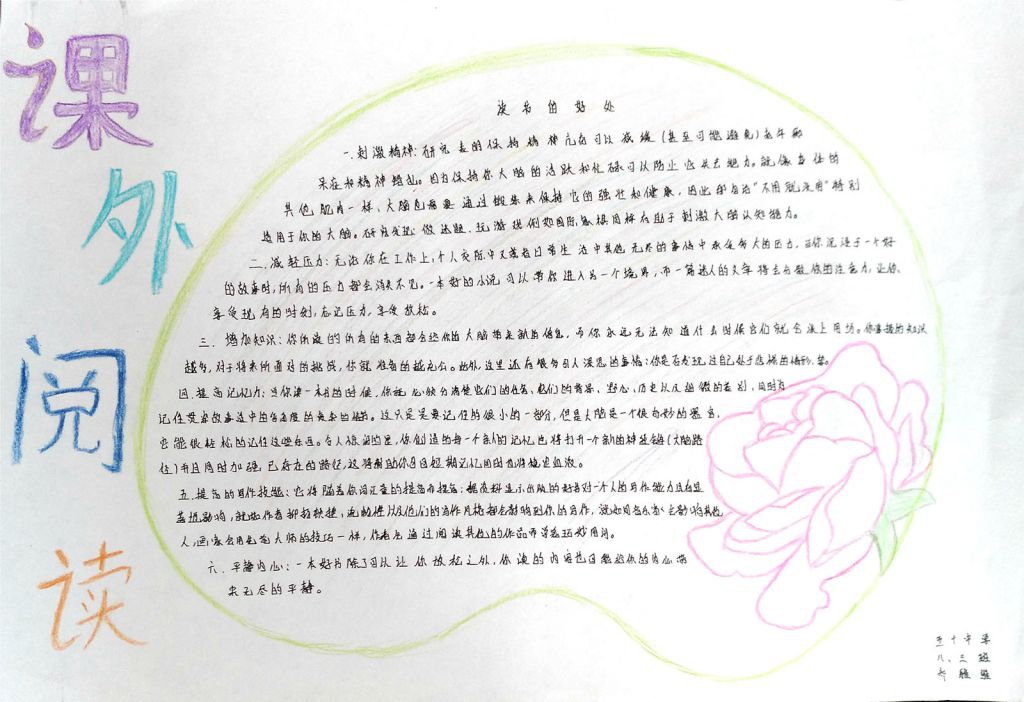 课外阅读
读书的好处
一.刺激精神:研究表明保持精神亢奋可以减缓(甚至可能避免)老年痴
呆症和精神错乱。因为保持你大脑的活跃和忙碌可以防止它失去能力。就像身体的
其他肌肉一样,大脑也需要通过锻炼来保持它的强壮和健康,因此那句话"不用就没用"特别
适用于你的大脑。研究发现:做谜题、玩游戏例如国际象棋同样有助于刺激大脑认知能力。
二.减轻压力:无论你在工作上,个人交际中又或者日常生活中其他无尽的事情中承受多大的压力,当你沉浸于一个好
的故事时,所有的压力都会消失不见。一本好的小说可以带你进入另一个境界,而一篇迷人的文章将会分散你的注意力,让你
享受现有的时刻,忘记压力,享受放松。
三.增加知识:你所读的所有的东西都会给你的大脑带来新的信息,而你永远无法知道什么时候它们就会派上用场。你掌握的知识
越多,对于将来所面对的挑战,你就准备的越充分。此外,这里还有很多引人深思的事情:你是否发现过自己处于悲惨的情形,
四.提高记忆力:当你读一本书的时候,你就必须分清楚他们的任务,他们的背景、野心、历史以及细微的差别,同时
记住贯穿故事这中的
这只是需要记住的很小的一部分,但是大脑是一个很奇妙的器官,
它能很轻松的记住这些东西。令人惊
你创造的每一个新的记忆也将打开一个新的神经键(大脑路
径)并且同时加强已存在的路径,这将帮助你
短期记忆同时
五.提高的写作技能:它将随着你阅读量的提高而提高:据资料显示出版的好书对一个人的写作能力具有显
著性影响,就如作者
流畅性以及他们的写作风格都会影响到你的写作,就如同音乐家会影响其他
人,画家会用先前大师的技巧一样,作者也通过阅读其他的作品而学
六.平静内心:一本好书除了可以让你放松之外,你读的内容也可能给你的内心带
来无尽的平静。
五十中学
八、三班